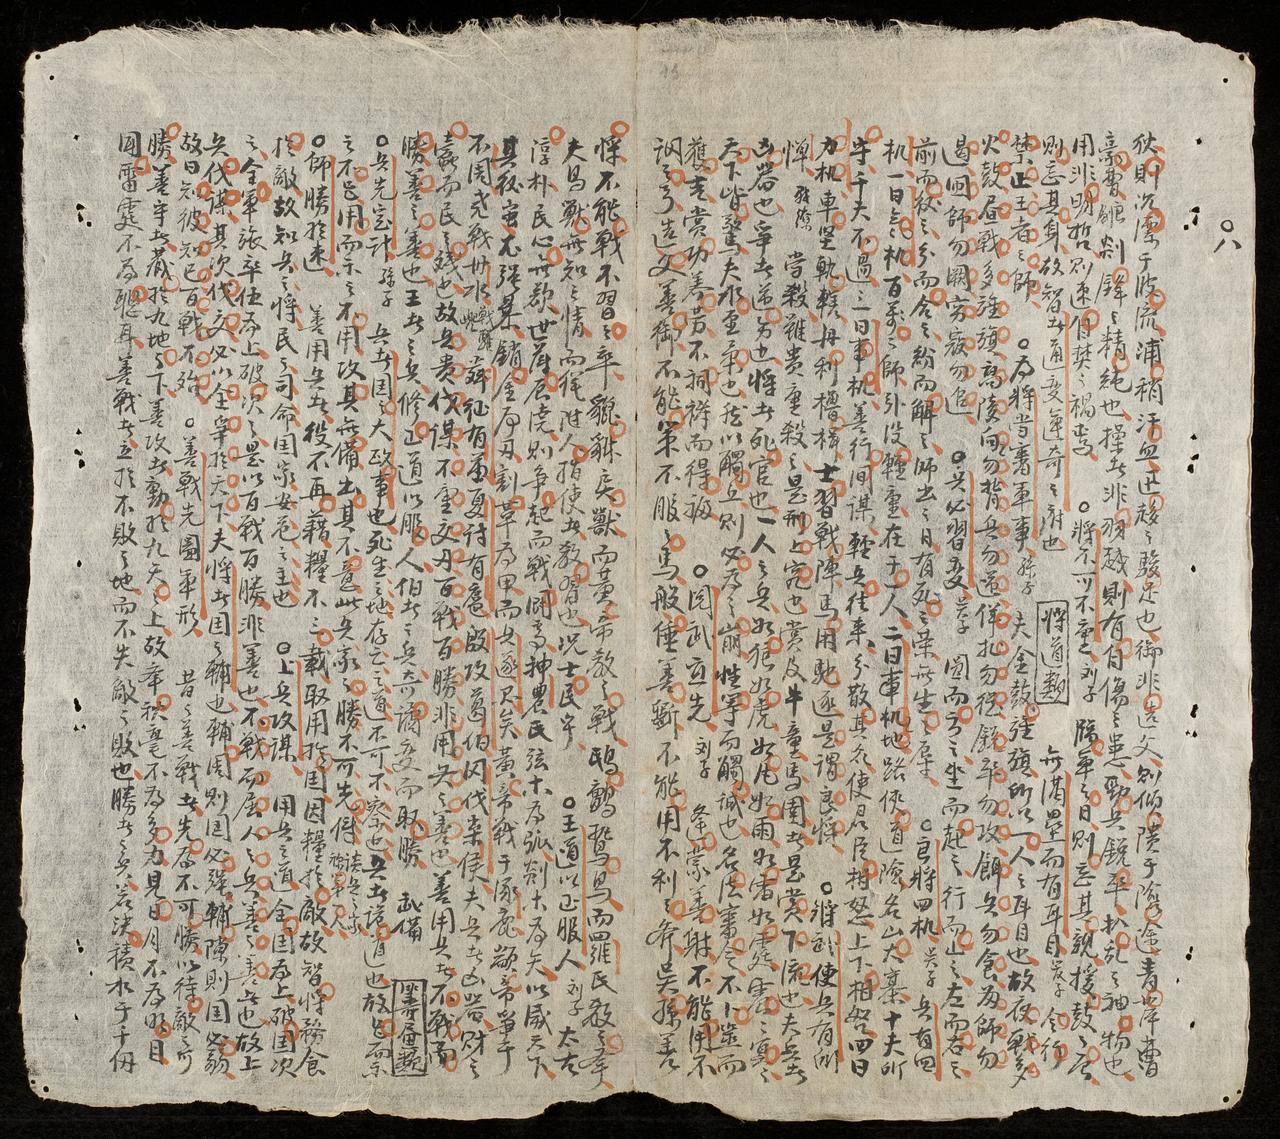 ○八
狄則沉漂于波流浦稍汗血迅趍之駿足也御非造父則傾僨于險途青萍曹
豪曹剞鋒之精純也操者非羽越則有自傷之患勁兵銳卒拔乱之神物也
用非明哲則速自焚之禍
○將不可不重 列子 臨軍之日則忘其親援鼓之辰
則忘其身故智者通変運奇之府也
將道類 無溝壘而有耳目 令行
禁止王者之師 ○為將當書軍事 孫子 夫金鼓旌旗所以一人之耳目也故夜戰多
火鼓昼戰多旌旗高陵勿向勿背兵勿迎佯北勿從銳卒勿攻餌兵勿食歸師勿
遏囲師勿闕窮寇勿迫 ○兵必習変 吳子 圓而方之坐而起之行而止之左而右之
前而後之分而合之結而解之師出之日有死之榮無生之辱 ○良將四机 吳子 兵有四
机一曰氣机百萬之師引設輕重在于一人二曰事机地路俠道險名山大塞十夫所
守千夫不過三曰事机善行間諜輕兵往来分散其衆使君臣相怒上下相咎四曰
力机車堅軌轄舟利櫓棹士習戰陣馬用馳逐是謂良將 ○將能使兵有所
憚 尉繚 當殺雖貴重殺之是刑上究也賞及牛童馬圉者是賞下流也夫兵者
凶器也爭者逆也將者死官也一人之兵如狼如虎如風如雨如雷如霆震之冥之
天下皆驚夫水至柔也所以觸丘則必為之崩性專而觸誠也名法審令不卜筮而
舊吉賞功養勞不祠禱而得福 ○閱武宜先 列子 奉蒙善射不能用不
調之弓造父善御不能策不服之馬般倕善斲不能用不利之斧吳孫善兵
憚不能戰不習之卒貔貅戾獸而黃帝教之戰鷹鸇鷙鳥而羅氏教之擊
夫鳥獸無知之情而徑附人指使者教習也况士民乎 ○王道以正服人 列子 太古
淳朴民心無欲世薄展澆則争起而戰鬪焉神農氏弦木為弧剡木為矢以威天下
其後蚩尤強暴銷金為刃割革為甲而兵遂興矣黃帝戰于涿鹿顓帝爭于
不周堯戰丹水舜征有苗夏討有扈殷攻葛伯周伐崇侯夫兵者凶器財之
蠹而民之殘也故兵貴伐謀不重交刃百戰百勝非用兵之善也善用兵者不戰而
勝善之善也王者之兵修正道以服人伯者之兵奇譎変而取勝 武備
籌畫類
○兵先定計 孫子 兵者国之大政事也死生之地存亡之道不可不察也兵者詭道也故能而示
之不能用而示之不用攻其無備出其不意此兵家之勝不可先傳
○師勝於速 善用兵者役不再藉糧不三載取用於国因糧於敵故智將務食
於敵故知兵之將民之司命国家安危之主也 ○上兵攻謀 用兵之道全国為上破国次
之全軍旅卒伍為上破次之是以百戰百勝非善也不戰而屈人之兵善之善者也故上
兵伐謀其次伐交必以全爭於天下夫將者国之輔也輔周則国必強輔隙則国必弱
故曰知彼知己百戰不殆 ○善戰先圖軍形 昔之善戰者先為不可勝以待敵之可
勝善守者藏於九地之下善攻者動於九天之上故舉秋毫不為多力見日月不為明目
聞雷霆不為聰耳善戰者立於不敗之地而不失敵之敗也勝者之兵若決積水于千仞